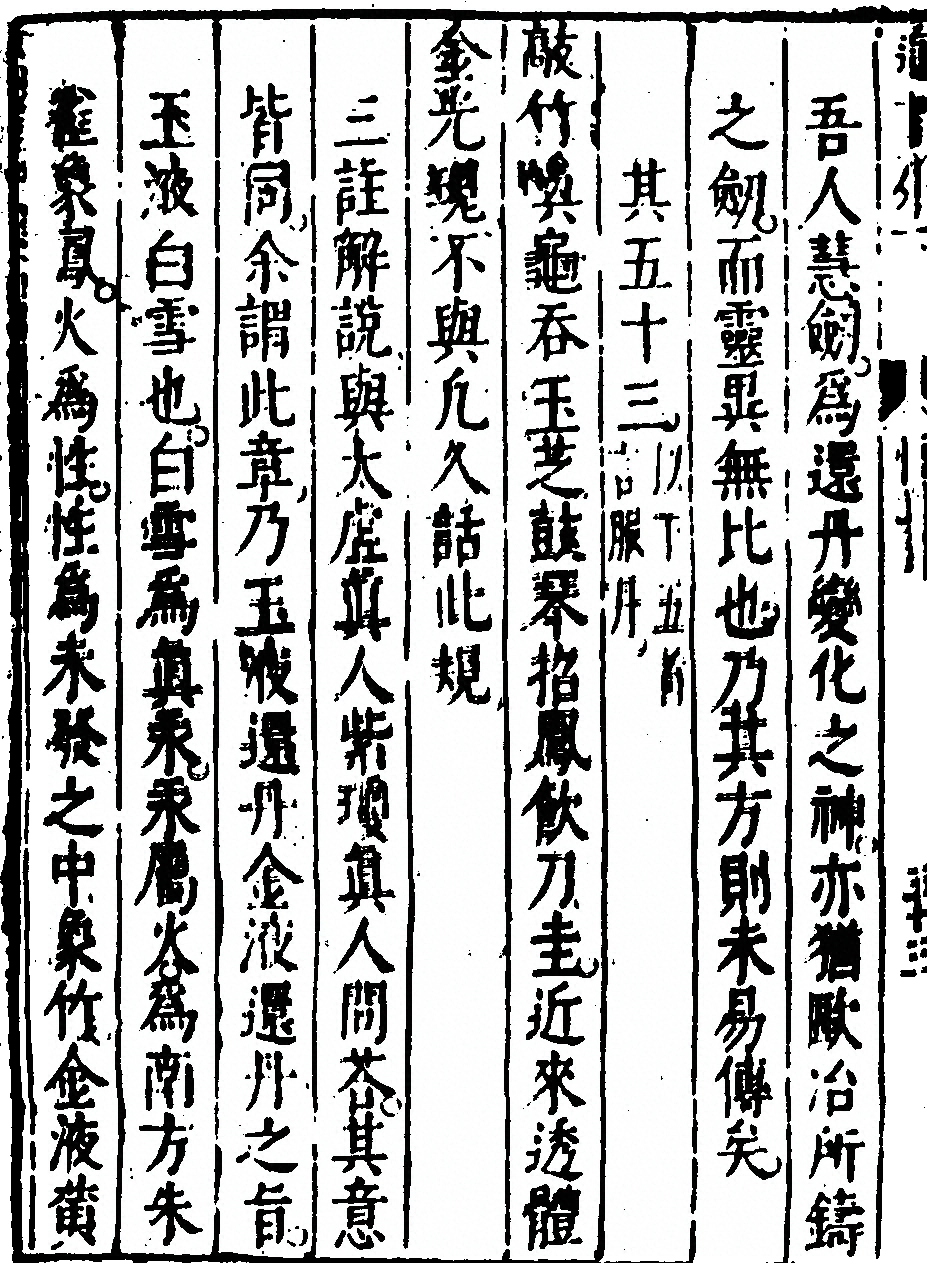 吾人慧劒爲還丹變化之神亦猶歐冶所鑄
之劒而靈異無比也乃其方則未易傳矣
其五十三以下五首言服丹
敲竹喚龜吞玉芝鼓琴招鳳飲刀圭近來透體
金光現不與凡人話此規
三註解說與太虛眞人紫瓊眞人問荅其意
皆同余謂此章乃玉液還丹金液還丹之旨
玉液白雪也白雪爲眞汞汞屬火爲南方朱
雀象鳳火爲性性爲未發之中象竹金液黄